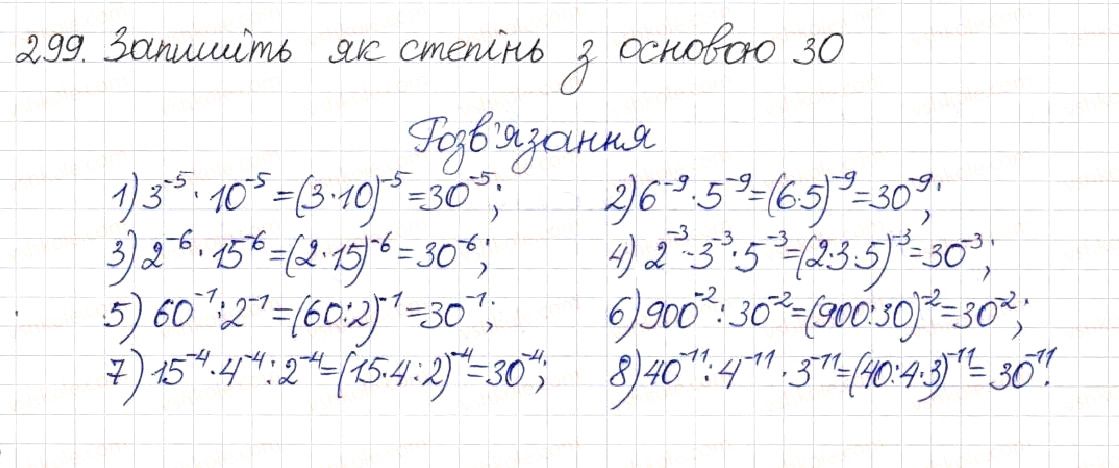 299. Запишіть як степінь з основою 30
Розв'язання
1) 3⁻⁵ · 10⁻⁵ = (3·10)⁻⁵ = 30⁻⁵; 2) 6⁻⁹ · 5⁻⁹ = (6·5)⁻⁹ = 30⁻⁹;
3) 2⁻⁶ · 15⁻⁶ = (2·15)⁻⁶ = 30⁻⁶; 4) 2⁻³ · 3⁻³ · 5⁻³ = (2·3·5)⁻³ = 30⁻³;
5) 60⁻¹ : 2⁻¹ = (60:2)⁻¹ = 30⁻¹; 6) 900⁻² : 30⁻² = (900:30)⁻² = 30⁻²;
7) 15⁻⁴ · 4⁻⁴ : 2⁻⁴ = (15·4:2)⁻⁴ = 30⁻⁴; 8) 40⁻¹¹ : 4⁻¹¹ · 3⁻¹¹ = (40:4·3)⁻¹¹ = 30⁻¹¹.